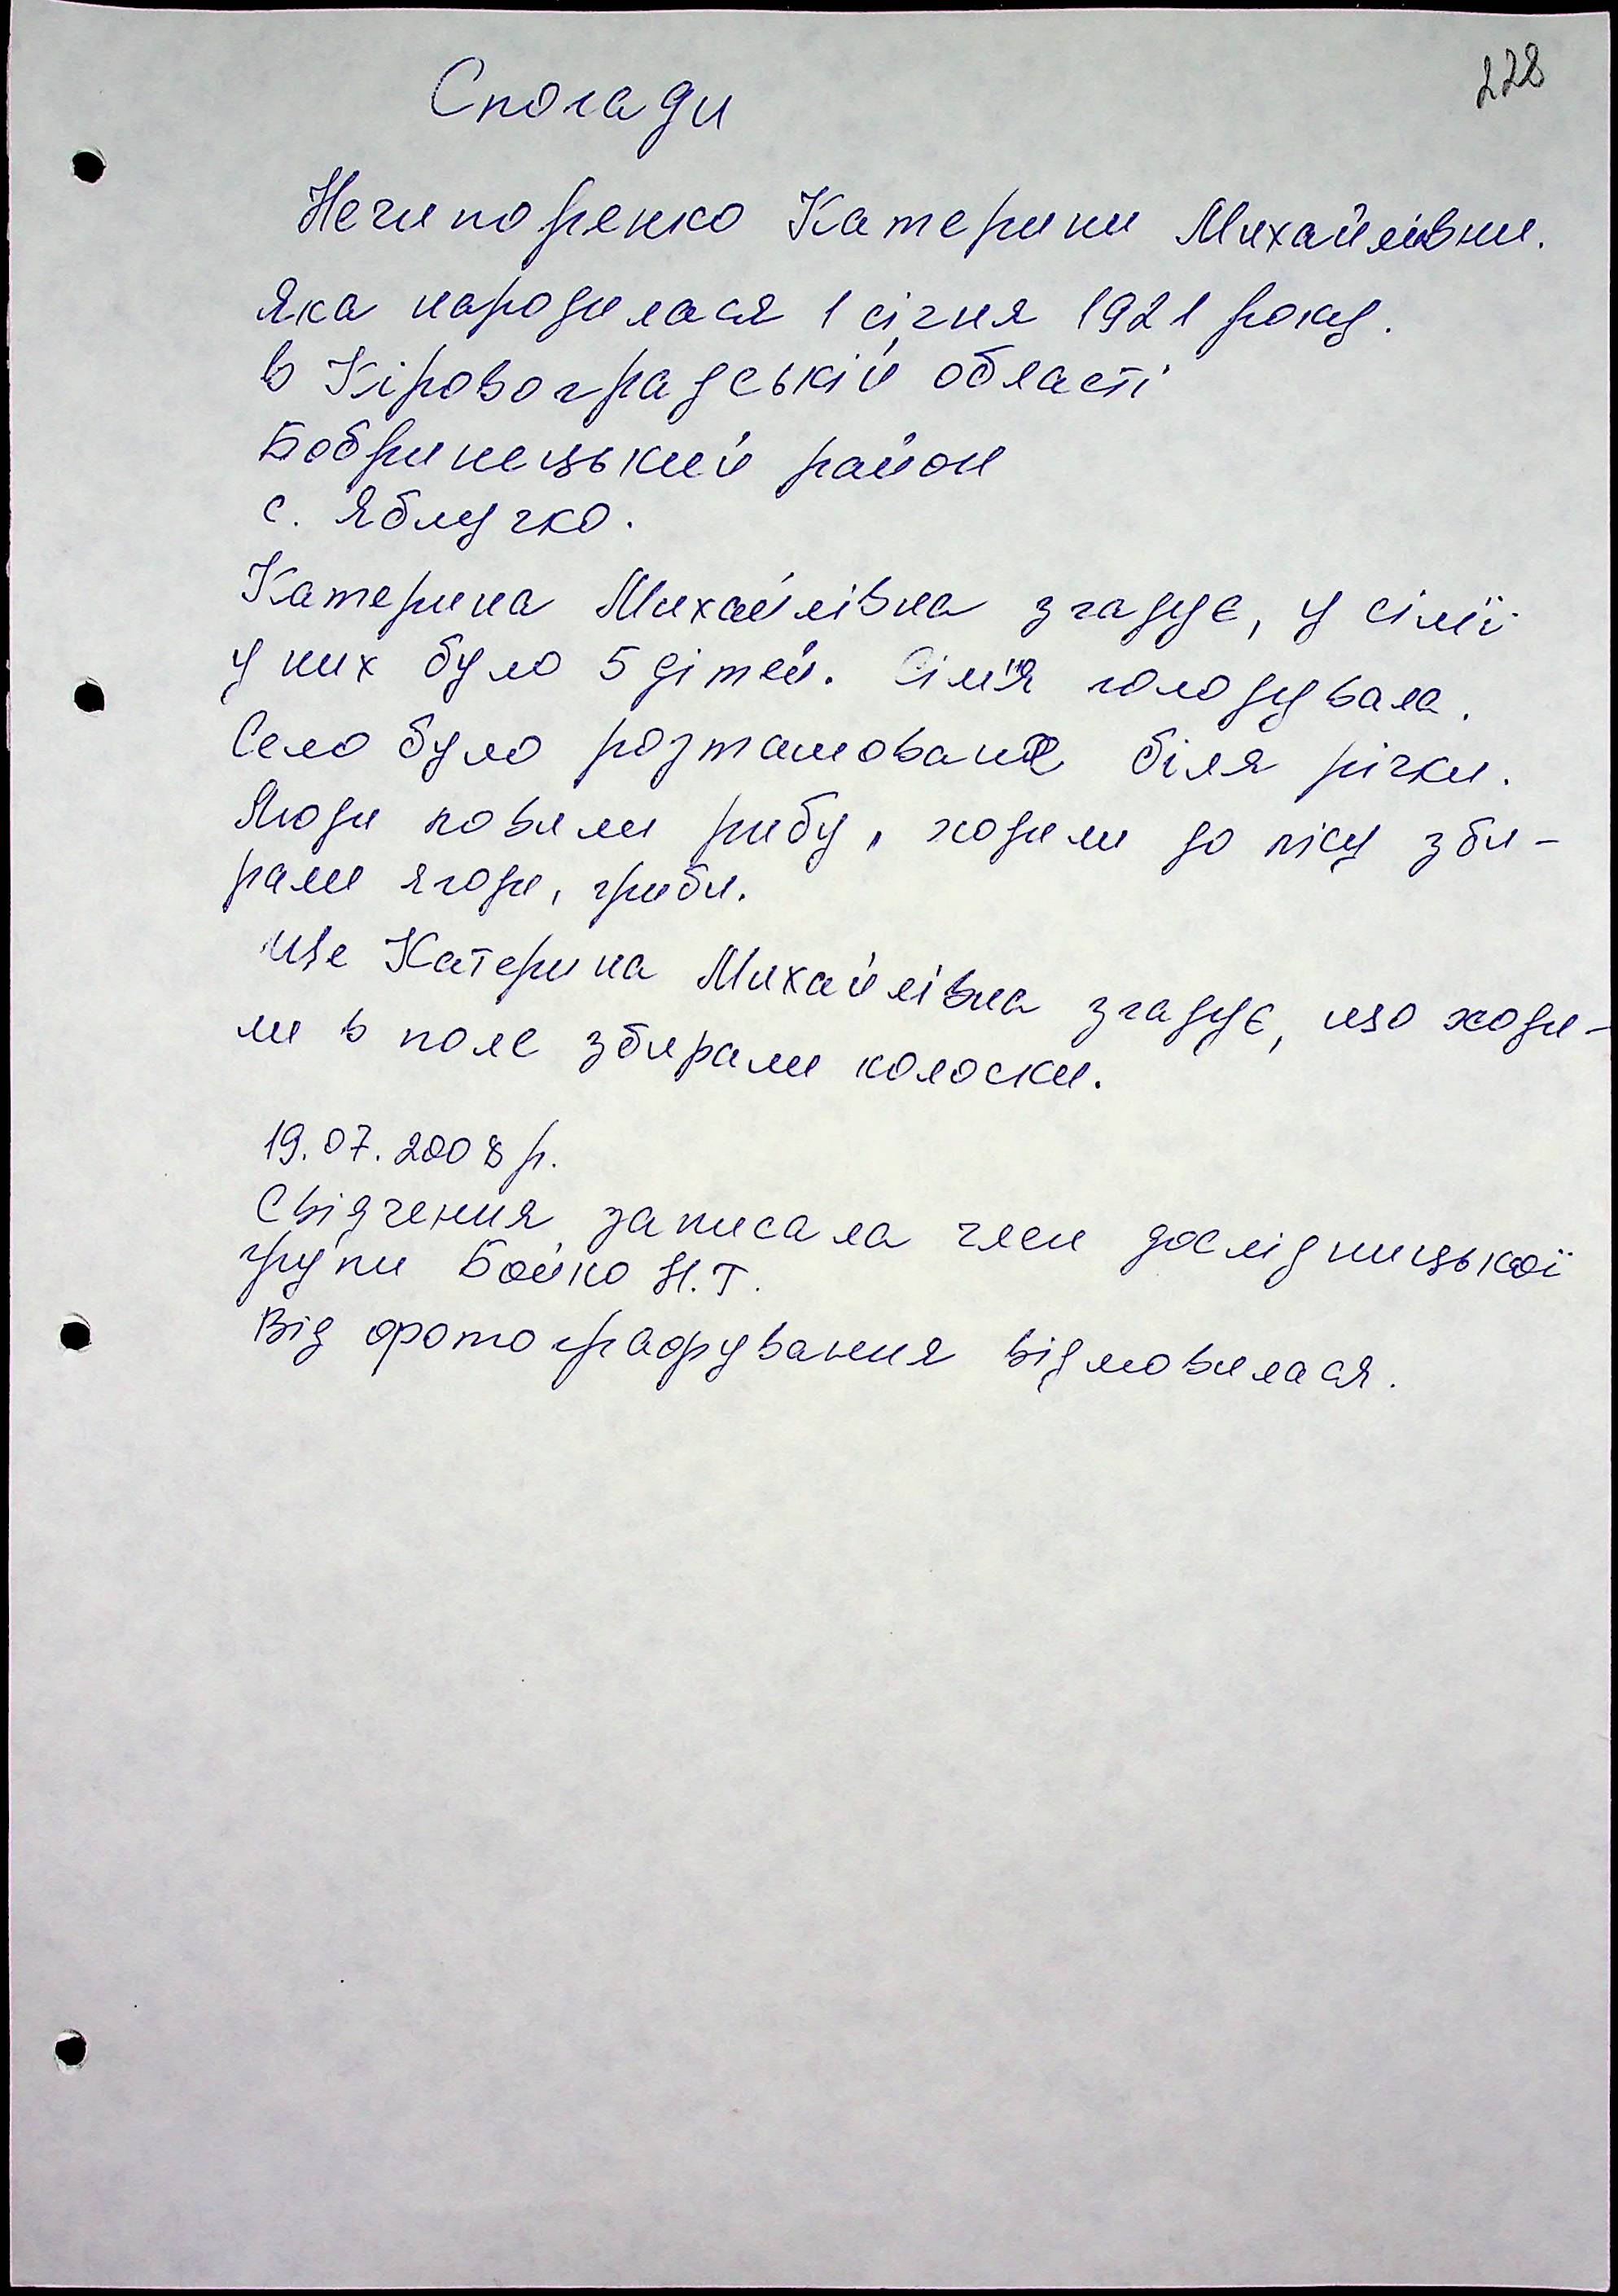 228
Спогади
Нечипоренко Катерини Михайлівни.
Яка народилася 1 січня 1921 року.
в Кіровоградській області
Бобринецький район
с. Яблучко.
Катерина Михайлівна згадує, у сімї
у них було 5 дітей. Сім'я голодувала.
Село було розташоване біля річки.
Люди ловили рибу, ходили до лісу зби-
рали ягоди, гриби.
Ще Катерина Михайлівна згадує, що ходи-
ли в поле збирали колоски.
19.07.2008 р.
Свідчення записала член дослідницької
групи Бойко Н.Т.
Від фотографування відмовилася.